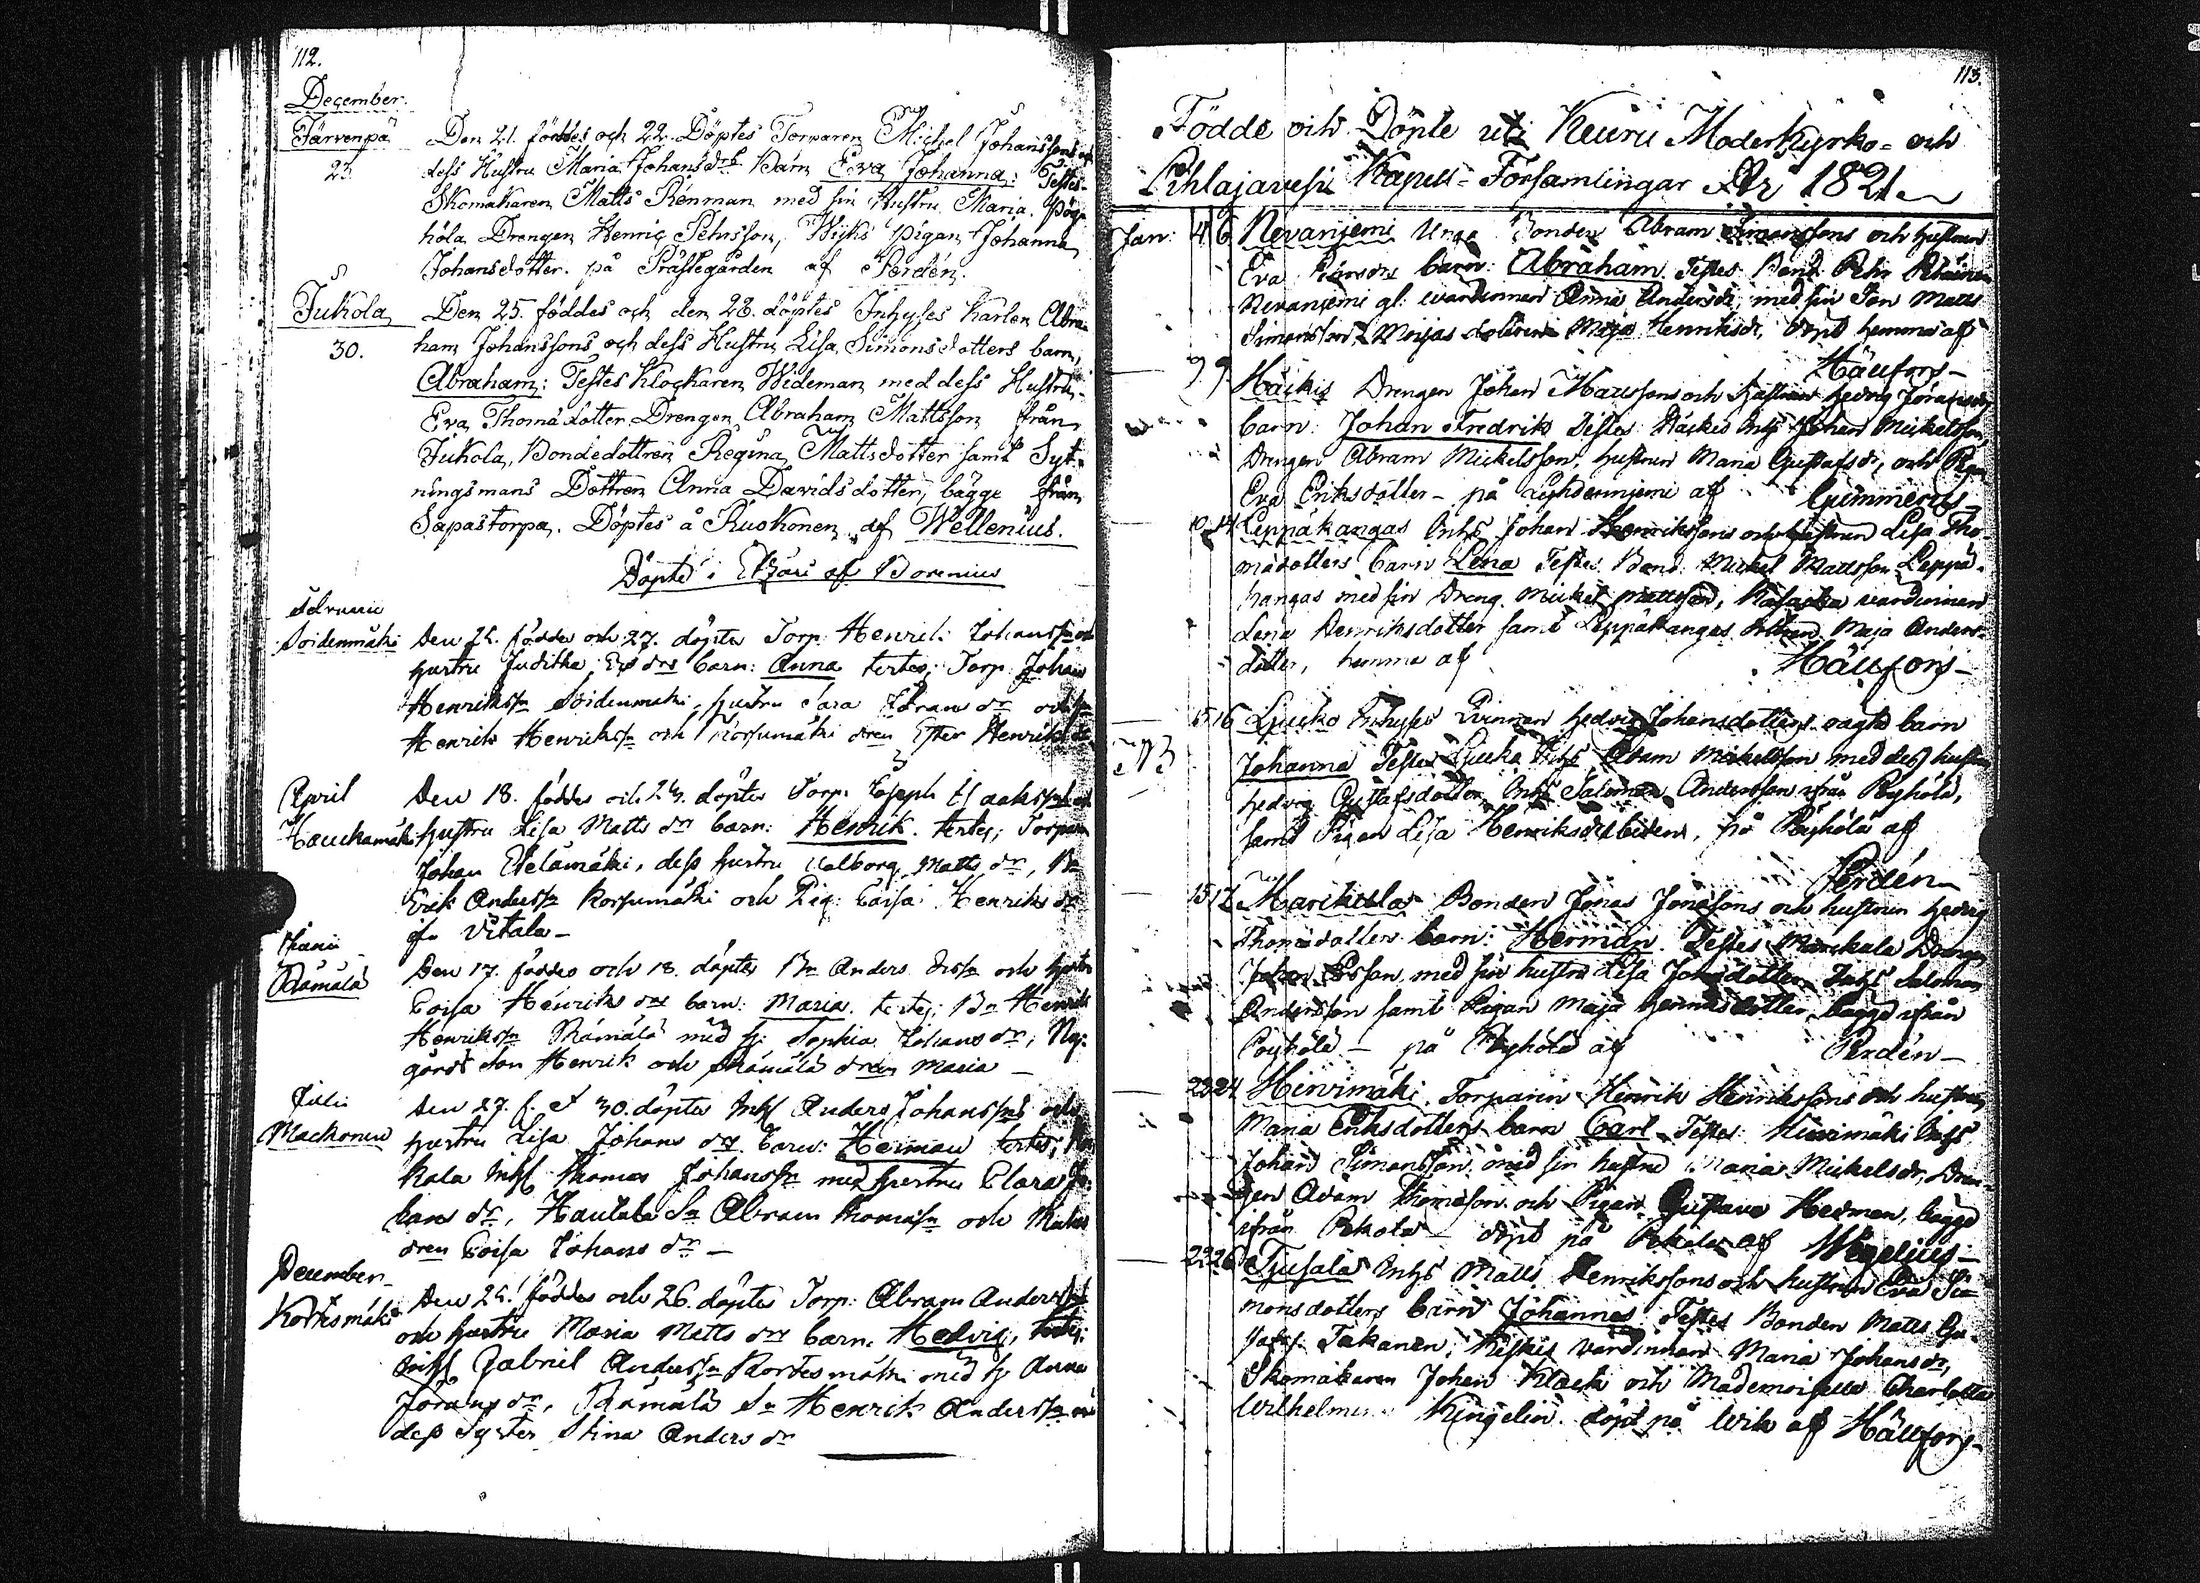 112.
December.
Järvenpä Den 21. föddes och 22. Döptes Torparen Michel Johanssons och
23. dess Hustru Maria Johansdrs Barn Eva Johanna: Testes
Skomakaren Matts Renman med sin Hustru Maria. Pöy-
höla Drengen Henric Pehrsson, Wiks pigan Johanna
Johansdotter. på Prästegården af Perdén.
Jukola Den 25. föddes och den 28. döptes Inhyses Karlen Abra-
30. ham Johanssons och dess Hustru Lisa Simonsdotters barn,
Abraham: Testes Klockaren Wideman med dess Hustru
Eva Thomædotter Drengen Abraham Mattsson från
Jukola, Bondedottren Regina Mattsdotter samt Syt-
ningsmans Dottren Anna Davidsdotter, bägge från
Sapastorpa. Döptes å Ruokonen af Wellenius.
Döpte i Etzäri af Borenius
Februarii
Soidenmäki Den 24. föddes och 27. döptes Torp: Henrik Johanss: och
hustru Juditha drs barn: Anna testes; Torp: Johan
Henrikssn Soidenmäki, hustru Sara Jörans dr och
Henrik Henrikssn och Korsumäki dren Ester Henriks
April Den 18. föddes och 24. döptes Torp: Joseph Isaakss och
Hauckamäki hustru Lisa Matts drs barn: Henrik. testes; Torparen
Johan Etelämäki, dess hustru Valborg Matts dr, Bn
Erik Anderssn Korsumäki och Pig: Caisa Henriks dr
ifr. Vitala—
Junii
Rämälä Den 17. föddes och 18. döptes Bn Anders och hustru
Caisa Henriks drs barn: Maria. testes; Bn Henrik
Henrikssn Rämälä med h: Sophia Johans dr; Ny-
gårds son Henrik och Rämälä dren Maria —
Julii Den 27. f. et 30. döptes Inhs Anders Johanssns och
Mackonen hustru Lisa Johans drs barn: Herman testes;
kala Inhs Thomas Johanssn med hustru Clara Jo-
hans dr, Hautala Sn Abram Thomassn och
dren Caisa Johans dr —
December
Kortesmäki Den 24. föddes och 26. döptes Torp: Abram Anders
och hustru Maria Matts drs barn. Hedvig, testes;
Inhs Gabriel Anderssn Kortesmäki med h Anna
Jörans dr, Rämälä Sn Henrik Anderssn och
dess Syster Stina Anders dr
113.
Födde och Döpte uti Keuru Moderkyrko- och
Pihlajavesi Kapell-Församlingar År 1821.
Jan: 4 6 Nevanjemi Unga Bonden Abram Simonssons och hustrun
Eva barn: Abraham Testes Bond. Pehr
Nevanjemi gl: vardinnan Anna Andersdr, med sin Son Matts
Simonsson, Moijas dottren Maja Henriksdr, döpt hemma af
Hällfors—
7 9 Häckis Drengen Johan Mattssons och hustrun Hedvig Jöransdrs
barn: Johan Fredrik Testes Häckis Inhs Johan Mickelsson,
Drengen Abram Mickelsson, hustrun Maria Gustafsdr, och Pigan
Eva Eriksdotter — på af Gummerus
10 14 Leppäkangas Inhs Johan Henrikssons och hustrun Lisa Tho-
mædotters barn Lena Testes Bond: Mickel Mattsson Leppä-
kangas med sin Dreng. Mickel Mattsson, vardinnan
Lena Henriksdotter samt Leppäkangas dottren Maja Anders-
dotter, hemma af Hällfors—
15 16 Ljucko Inhyses Qvinnan Hedvig Johansdotters oägta barn
NB Johanna Testes Ljucko Inhs Adam Mickelsson med dess hustru
Hedvig Gustafsdotter, Inhs Salomon Andersson ifrån Pöyhölä,
samt Pigan Lisa Henriksdr, på Pöyhölä af
Perdén—
15 17 Marikala Bonden Jonas Jonassons och hustrun Hedvig
Thomædotters barn: Herman. Testes Marikala Drengen
Johan med sin hustru Lisa Jonsdotter, Inhs Salomon
Andersson samt Pigan Maja Hermansdotter, bägge ifrån
Pöyhölä — på Pöyhölä af Perdén—
23 24 Hirvimäki. Torparen Henrik Henrikssons och hustrun
Maria Eriksdotters barn Carl Testes Hirvimäki Inhs
Johan Simonsson med sin hustru Maria Mickelsdr, Dren-
gen Adam Thomasson och Pigan Gustava Hedman, bägge
ifrån Pekola — döpt på Pekola af Wegelius—
23 26 Tjusala Inhs Matts Henrikssons och hustrun Eva Si-
monsdotters barn Johannes Testes Bonden Matts Gu-
stafs: Takanen, Kiskis vardinnan Maria Johansdr,
Skomakaren Johan Klack och Mademoiselle Charlotta
Wilhelmina Kingelin döpt på Wik af Hällfors—